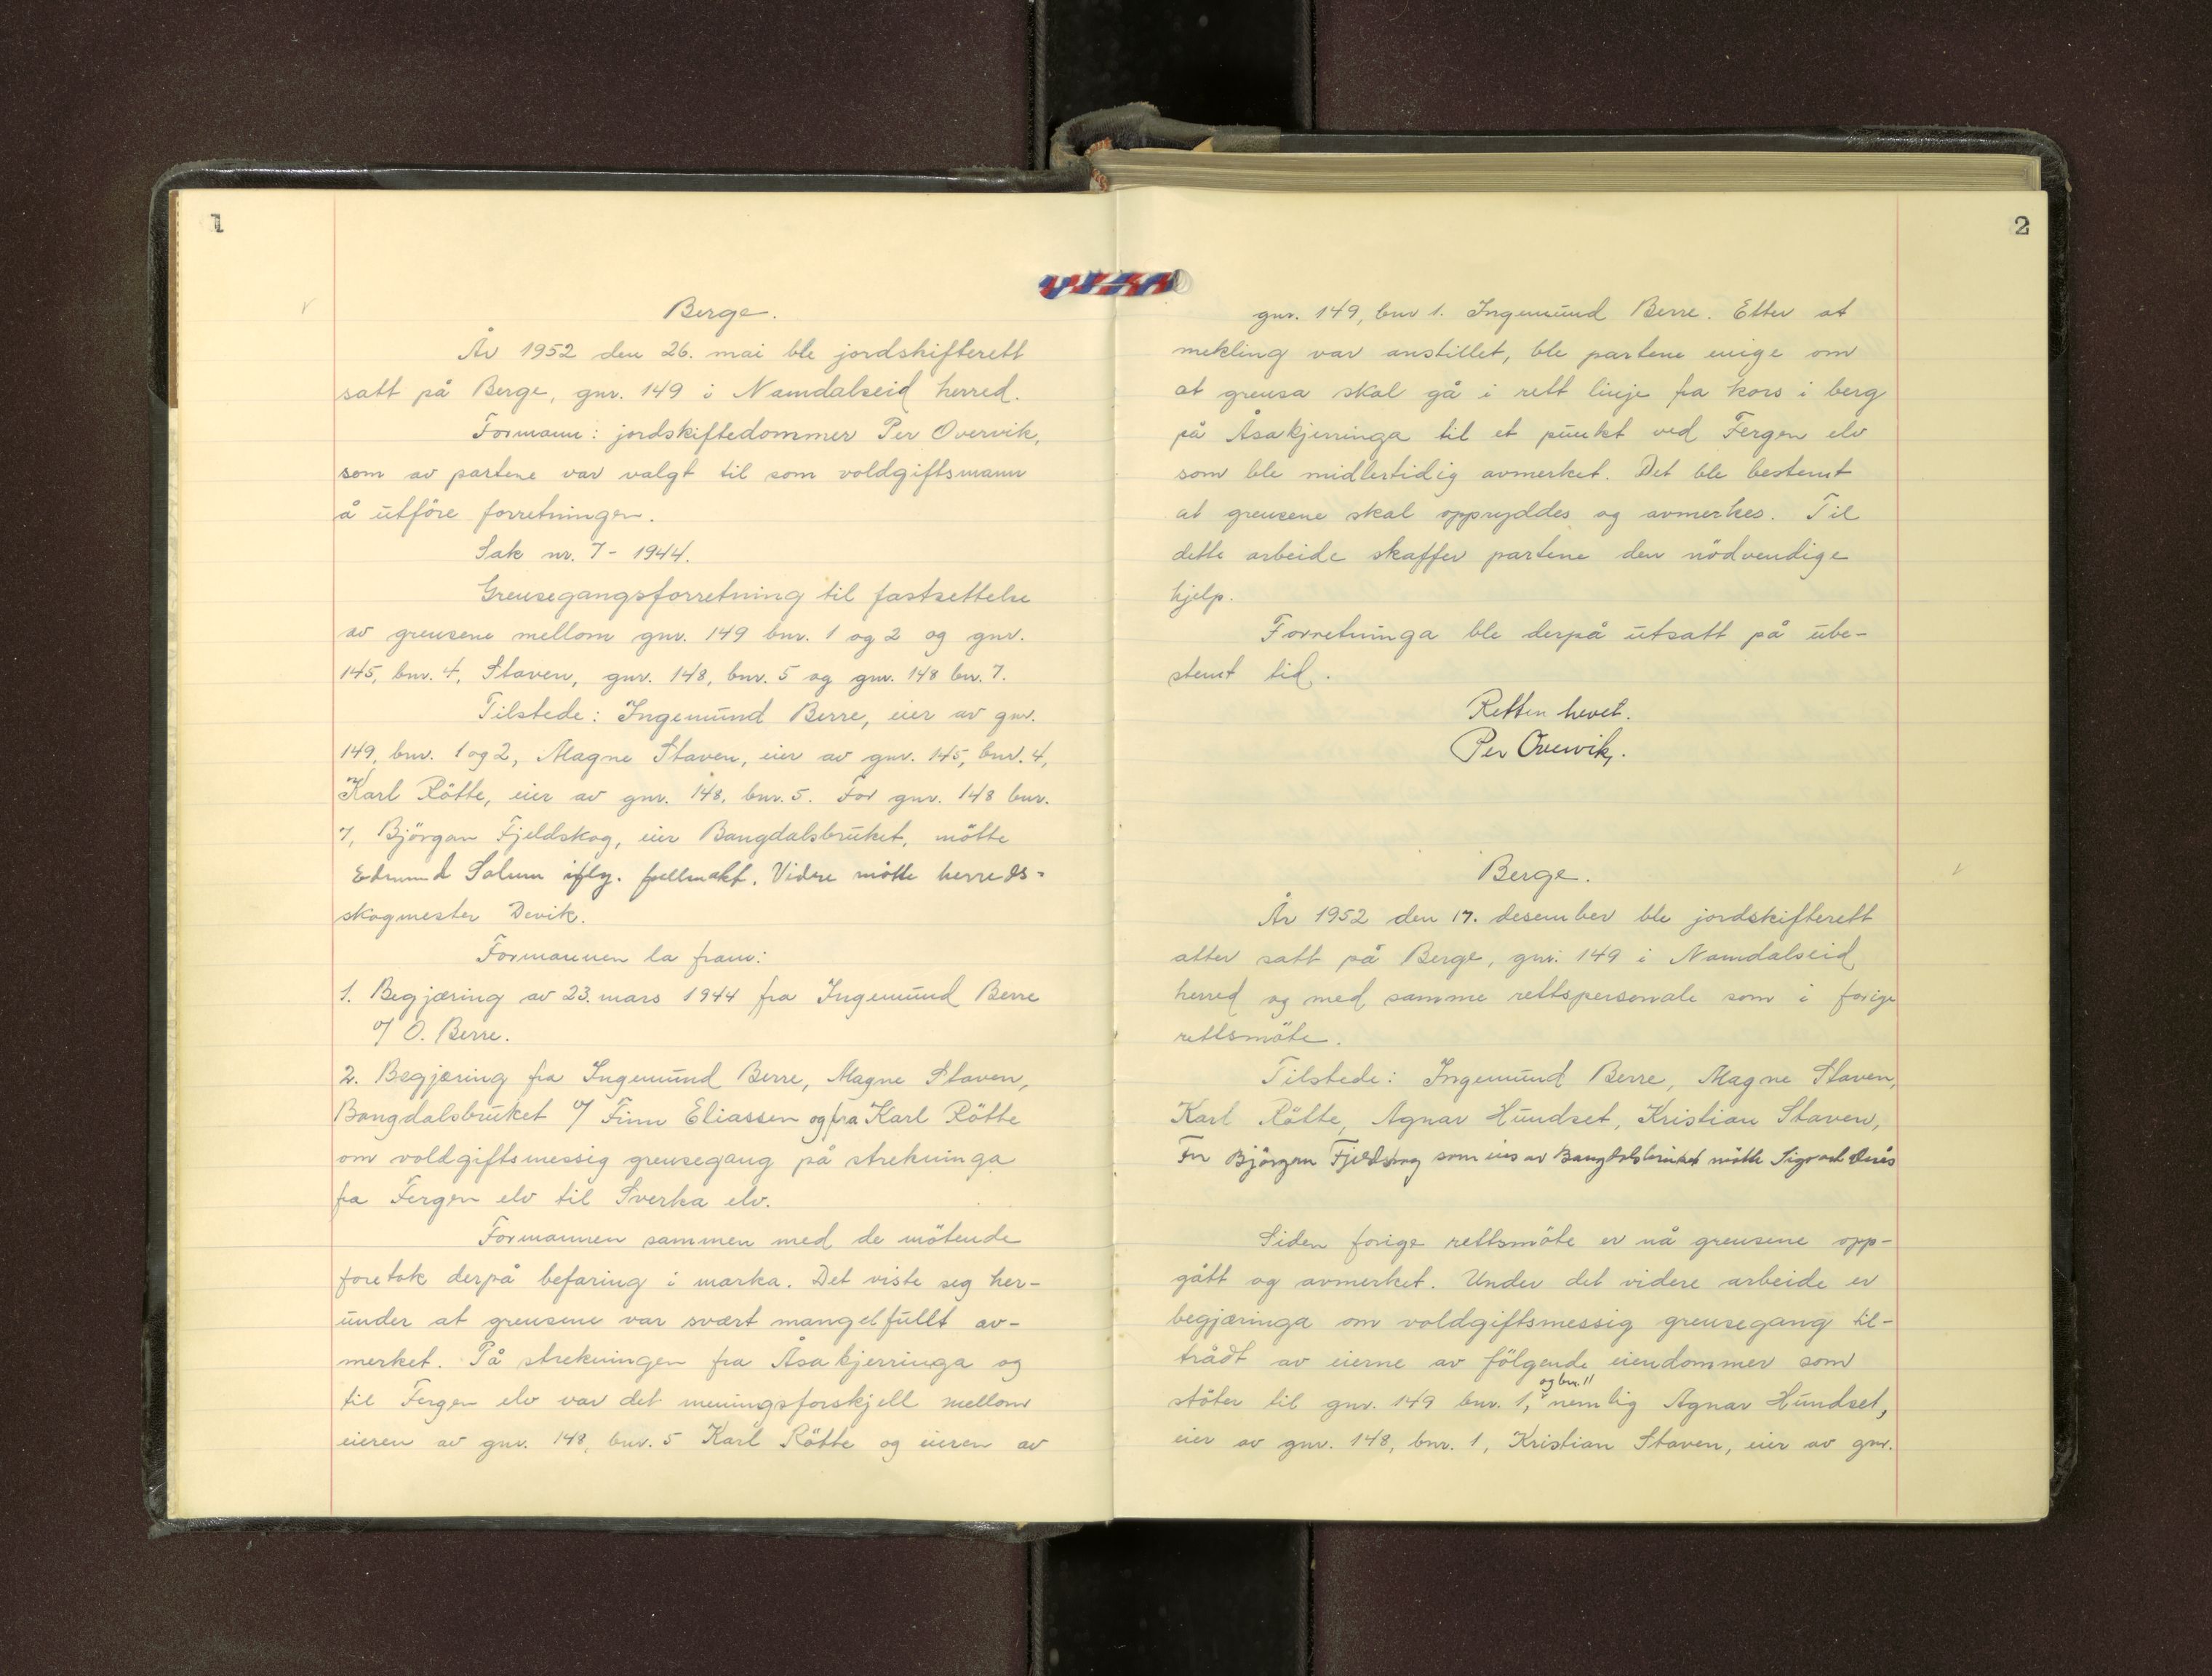 1
Berge.
År 1952 den 26. mai ble jordskifterett
satt på Berge, gnr. 149 i Namdalseid herred.
Formann: jordskiftedommer Per Overvik,
som av partene var valgt til som voldgiftsmann
å utföre forretningen.
Sak nr. 7 - 1944.
Grensegangsforretning til fastsettelse
av grensene mellom gnr. 149 bnr. 1 og 2 og gnr.
145, bnr. 4, Staven, gnr. 148, bnr. 5 og gnr. 148 bnr. 7.
Tilstede: Ingemund Berre, eier av gnr.
149, bnr. 1 og 2, Magne Staven, eier av gnr. 145, bnr. 4,
Karl Rötte, eier av gnr. 148, bnr. 5. For gnr. 148 bnr.
7, Björgan Fjeldskog, eier Bangdalsbruket, mötte
Edmund Solum iflg. fullmakt. Videre mötte herreds-
skogmester Devik.
Formannen la fram:
1. Begjæring av 23. mars 1944 fra Ingemund Berre
v/ O. Berre.
2. Begjæring fra Ingemund Berre, Magne Staven,
Bangdalsbruket v/ Finn Eliassen og fra Karl Rötte
om voldgiftsmessig grensegang på strekninga
fra Fergen elv til Sverka elv.
Formannen sammen med de mötende
foretok derpå befaring i marka. Det viste seg her-
under at grensene var svært mangelfullt av-
merket. På strekningen fra Åsakjerringa og
til Fergen elv var det meningsforskjell mellom
eieren av gnr. 148, bnr. 5 Karl Rötte og eieren av
2
gnr. 149, bnr 1. Ingemund Berre. Etter at
mekling var anstillet, ble partene enige om
at grensa skal gå i rett linje fra kors i berg
på Åsakjerringa til et punkt ved Fergen elv
som ble midlertidig avmerket. Det ble bestemt
at grensene skal oppryddes og avmerkes. Til
dette arbeide skaffer partene den nödvendige
hjelp.
Forretninga ble derpå utsatt på ube-
stemt tid.
Retten hevet.
Per Overvik.
Berge.
År 1952 den 17. desember ble jordskifterett
atter satt på Berge, gnr. 149 i Namdalseid
herred og med samme rettspersonale som i forige
rettsmöte.
Tilstede: Ingemund Berre, Magne Staven,
Karl Rötte, Agnar Hundset, Kristian Staven,
For Björgan Fjeldskog som eies av Bangdalsbruket mötte Sigvard
Siden forige rettsmöte er nå grensene opp-
gått og avmerket. Under det videre arbeide er
begjæringa om voldgiftsmessig grensegang til-
trådt av eierne av fölgende eiendommer som
og bnr. 11
stöter til gnr. 149 bnr. 1, nemlig Agnar Hundset,
eier av gnr. 148, bnr. 1, Kristian Staven, eier av gnr.